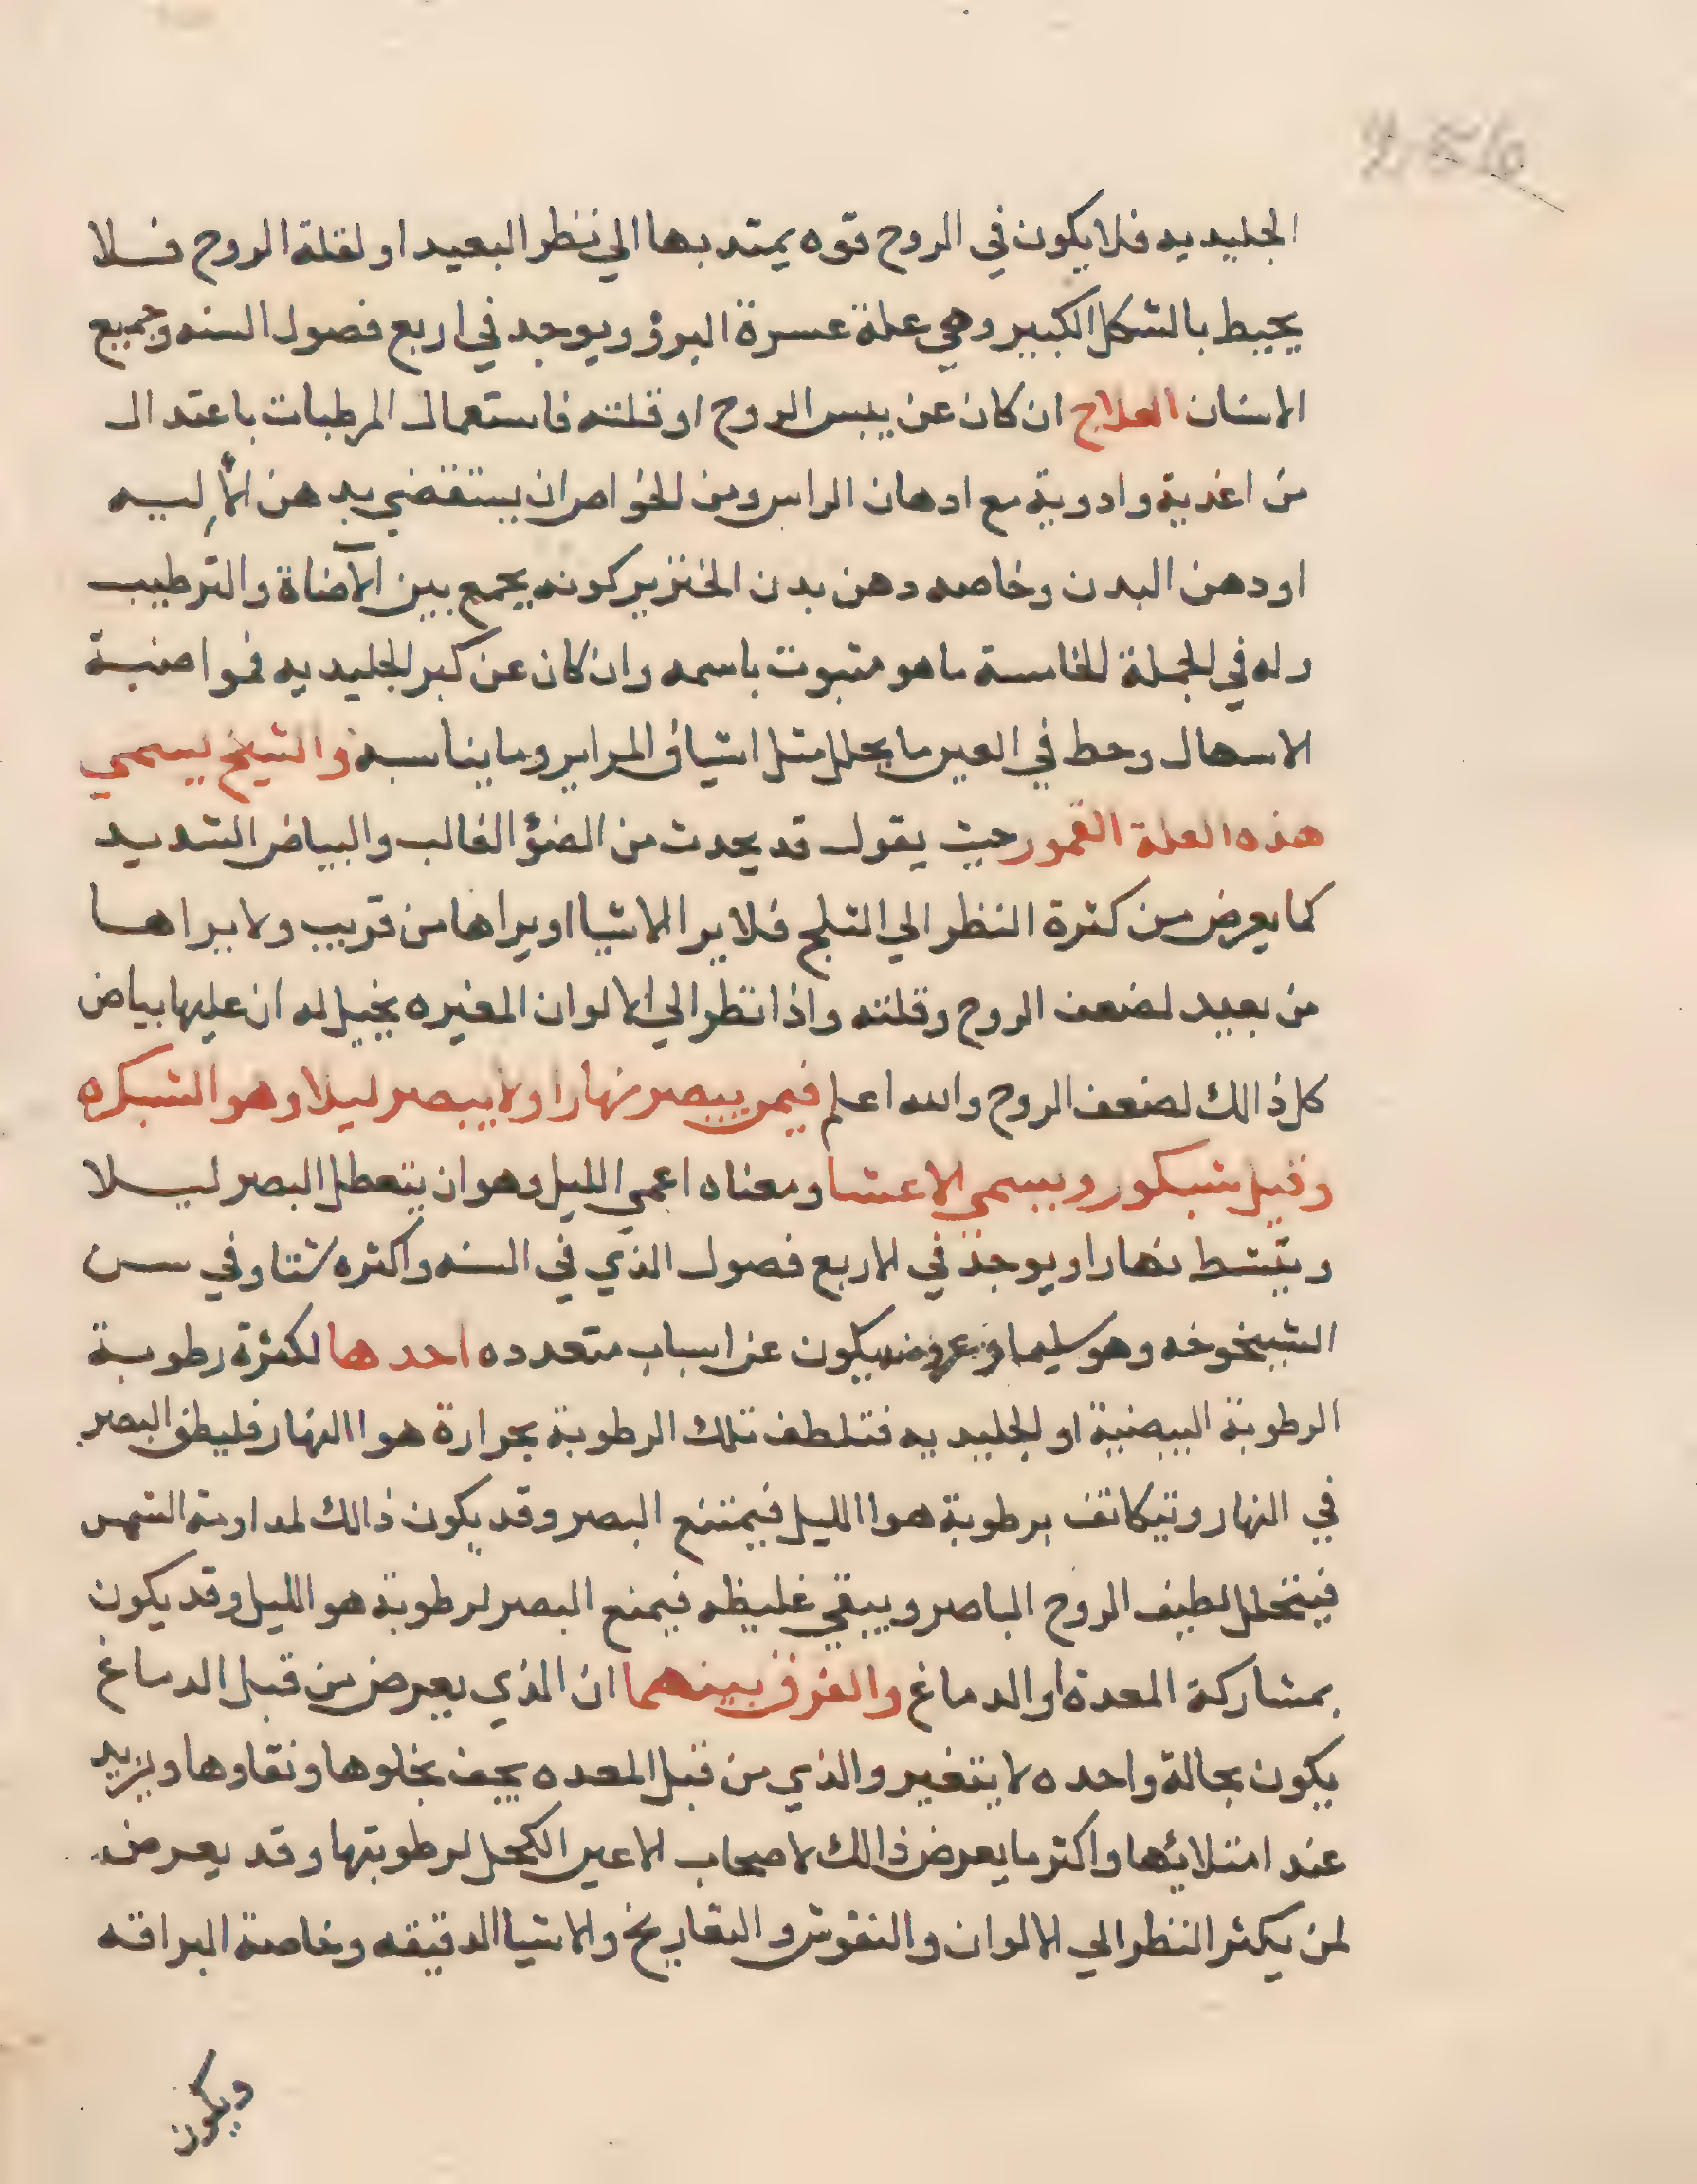 الجليديه فلا يكون في الروح قوه يمتد بها الي نظر البعيد او لقلة الروح فلا
يحيط بالشكل الكبير وهي علة عسرة البرؤ ويوجد في اربع فصول السنه وجميع
الاسنان العلاج ان كان عن يبس الروح او قلته فاستعمال المرطبات باعتدال
من اغذية وادوية مع ادهان الراس ومن الخواص ان يستقضي بدهن الألِيه
او دهن البدن وخاصه دهن بدن الخنزير كونه يجمع بين الآضاة والترطيب
وله في الجملة الخامسة ما هو مثبوت باسمه وان كان عن كبر الجليديه فمواضبة
الاسهال وحط في العين ما يحلل مثل اشياف المراير وما يناسبه والشيخ يسمي
هذه العلة القمور حيث يقول قد يحدث من الضؤ الغالب والبياض الشديد
كما يعرض من كثرة النظر الي الثلج فلا يرا الاشيا او يراها من قريب ولا يراها
من بعيد لضعف الروح وقلته واذا نظر الي الالوان المغيره يخيل له ان عليها بياض
كل ذالك لضعف الروح والله اعلم فيمن يبصر نهارا ولا يبصر ليلا وهو الشبكره
وقيل شبكور ويسمي الاعشا ومعناه اعمي الليل وهو ان يتعطل البصر ليلا
وينشط نهارا ويوجد في الاربع فصول الذي في السنه واكثره شتا وفي سن
الشيخوخه وهو سليما وعروضه يكون عن اسباب متعدده احدها لكثرة رطوبة
الرطوبة البيضية او الجليديه فتلطف تلك الرطوبة بحرارة هوا النهار فليطف البصر
في النهار وتيكاثف برطوبة هوا الليل فيمتنع البصر وقد يكون ذالك لمداومة الشمس
فيتحلل لطيف الروح الباصر ويبقي غليظه فيمنع البصر لرطوبة هو الليل وقد يكون
بمشاركة المعدة او الدماغ والفرق بينهما ان الذي يعرض من قبل الدماغ
يكون بحالة واحده لا يتغير والذي من قبل المعده يخف بخلوها ونقاوها ويزيد
عند امتلائها واكثر ما يعرض ذالك لاصحاب الاعين الكحل لرطوبتها وقد يعرض
لمن يكثر النظر الي الالوان والنقوش والتفاريخ والاشيا الدقيقه وخاصة البراقه
ويكون